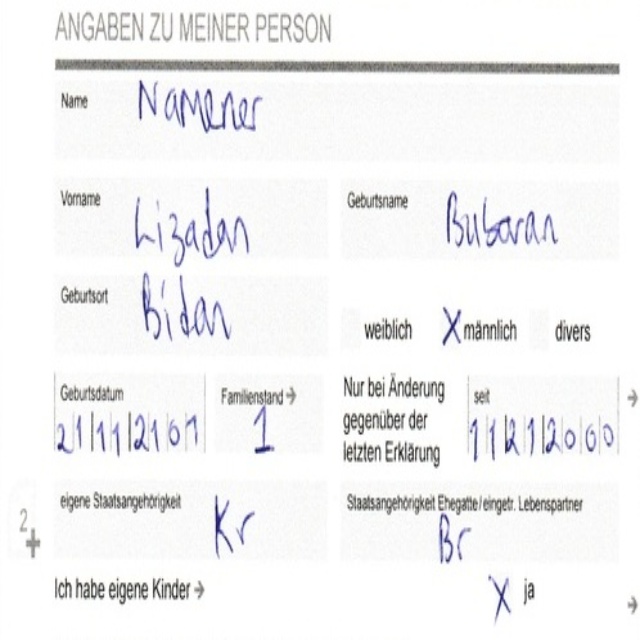 ANGABEN ZU MEINER PERSON
Name Namener
Vorname Lizadan
Geburtsname Bubaran
Geburtsort Bidan
weiblich X männlich divers
Geburtsdatum 21112101
Familienstand → 1
Nur bei Änderung
gegenüber der
letzten Erklärung
seit 11212000
→
eigene Staatsangehörigkeit Kr
Staatsangehörigkeit Ehegatte/eingetr. Lebenspartner Br
2
+
Ich habe eigene Kinder →
X ja
→